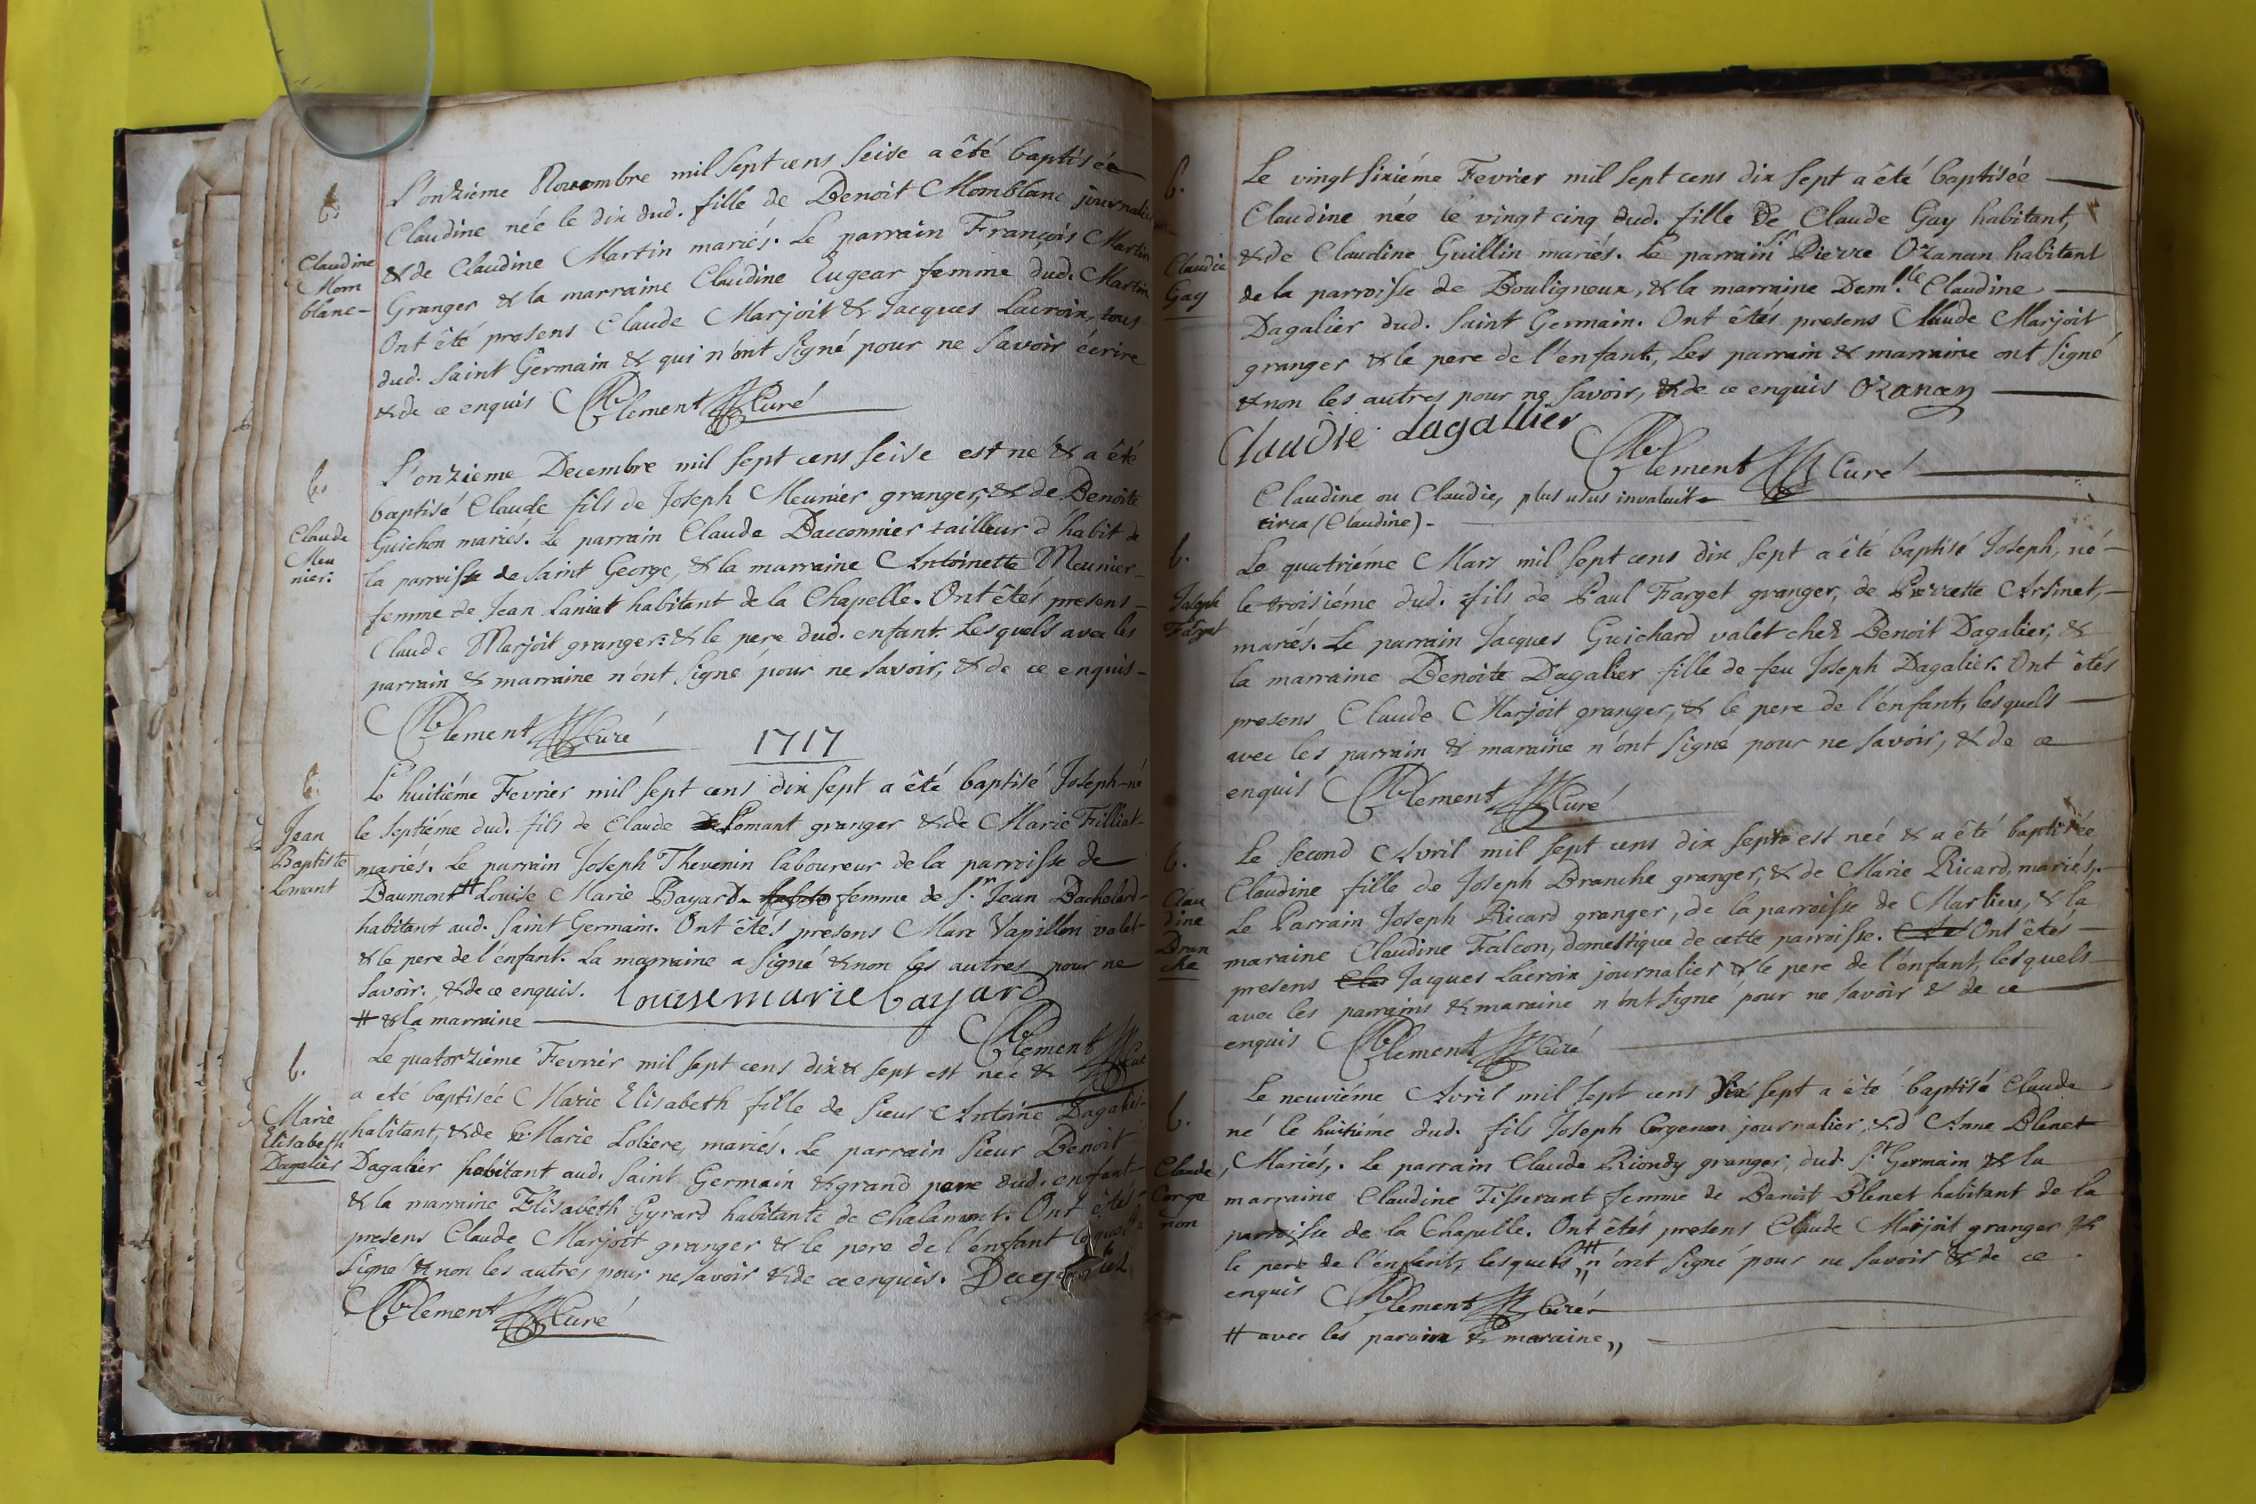 b.
Claudine
Mom
blanc-
L'onziéme Novembre mil sept cens seise a êté baptisée
Claudine née le dix dud. fille de Benoit Momblanc journalier
& de Claudine Martin mariés. Le parrain François Martin
Granger & la marraine Claudine Lugear femme dud. Martin
Ont êté presens Claude Marjoit & Jacques Lacroix, tous
dud. Saint Germain & qui n'ont signé pour ne savoir écrire
& de ce enquis Clement Curé
b.
Claude
Meu
nier.
L'onzieme Decembre mil sept cens seise est né & a êté
baptisé Claude fils de Joseph Meunier granger, & de Benoite
Guichon mariés. Le parrain Claude Dacconnier tailleur d'habit de
la parroisse de Saint George, & la marraine Antoinette Meunier-
femme de Jean Laniat habitant de la Chapelle. Ont êtés presens-
Claude Marjoit granger. & le pere dud. enfant. Lesquels avec les
parrain & marraine n'ont signé pour ne savoir, & de ce enquis-
Clement Curé
1717
b.
Jean
Baptiste
Lomant
Le huitiéme Fevrier mil sept cens dix sept a êté baptisé Joseph né
le septiéme dud. fils de Claude Lomant granger & de Marie Filliat-
mariés. Le parrain Joseph Thevenin laboureur de la parroisse de
Baumont # Louise Marie Bayard femme de Sr. Jean Bachelard-
habitant aud. Saint Germain. Ont êtés presens Marc Vapillon valet
& le pere de l'enfant. La marraine a signé & non les autres pour ne
savoir. & de ce enquis. Louise marie bayard
# & la marraine
Clement Curé
b.
Marie
Elisabeth
Dagalier
Le quatorziéme Fevrier mil sept cens dix & sept est née &
a eté baptisée Marie Elisabeth fille de Sieur Antoine Dagalier-
habitant, & de Marie Loliere, mariés. Le parrain Sieur Benoit
Dagalier habitant aud. Saint Germain & grand pere dud. enfant
& la marraine Elisabeth Gyrard habitante de Chalamont. Ont êtés
presens Claude Marjoit granger & le pere de l'enfant lequel a
signé & non les autres pour ne savoir & de ce enquis.
Clement Curé
b.
Claudie
Gay
Le vingt sixiéme Fevrier mil sept cens dix sept a êté baptisée
Claudine née le vingt cinq dud. fille de Claude Gay habitant,
& de Claudine Guillin mariés. Le parrain Sr. Pierre Ozanan habitant
de la parroisse de Bouligneux, & la marraine Demlle. Claudine
Dagalier dud. Saint Germain. Ont êtés presens Claude Marjoit
granger & le pere de l'enfant, Les parrain & marraine ont signé
& non les autres pour ne savoir, & de ce enquis Ozanan
Claudie dagallier
Clement Curé
Claudine ou Claudie, plus usus invaluit
circa (Claudine).
b.
Joseph
Farget
Le quatriéme Mars mil sept cens dix sept a êté baptisé Joseph, né-
le troisiéme dud. fils de Paul Farget granger, de Pierrette Arsinet,-
mariés. Le parrain Jacques Guichard valet chez Benoit Dagalier, &
la marraine Benoite Dagalier fille de feu Joseph Dagalier. Ont êtés
presens Claude Marjoit granger, & le pere de l'enfant, lesquels
avec les parrain & maraine n'ont signé pour ne savoir, & de ce
enquis Clement Curé
b.
Clau
dine
Bran
che
Le second Avril mil sept cens dix sept est neé & a êté baptisée
Claudine fille de Joseph Branche granger, & de Marie Ricard, mariés.
Le Parrain Joseph Ricard granger, de la parroisse de Marlieu, & la
maraine Claudine Falcon, domestique de cette parroisse. Ont êtés
presens Jacques Lacroix journalier & le pere de l'enfant, lesquels
avec les parrains & maraine n'ont signé pour ne savoir & de ce
enquis Clement Curé
b.
Claude
Corge
non
Le neuviéme Avril mil sept cens dix sept a êté baptisé Claude
né le huitiéme dud. fils Joseph Corgenon journalier, & d'Anne Blenet
Mariés,. Le parrain Claude Riondy granger, dud. St. Germain & la
marraine Claudine Tisserant femme de Benoit Blenet habitant de la
parroisse de la Chapelle. Ont êtés presens Claude Marjoit granger &
le pere de l'enfant, lesquels # n'ont signé pour ne savoir & de ce
enquis Clement Curé
# avec les parain & maraine,,